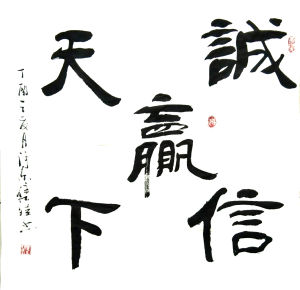 誠信
贏
天下
丁酉